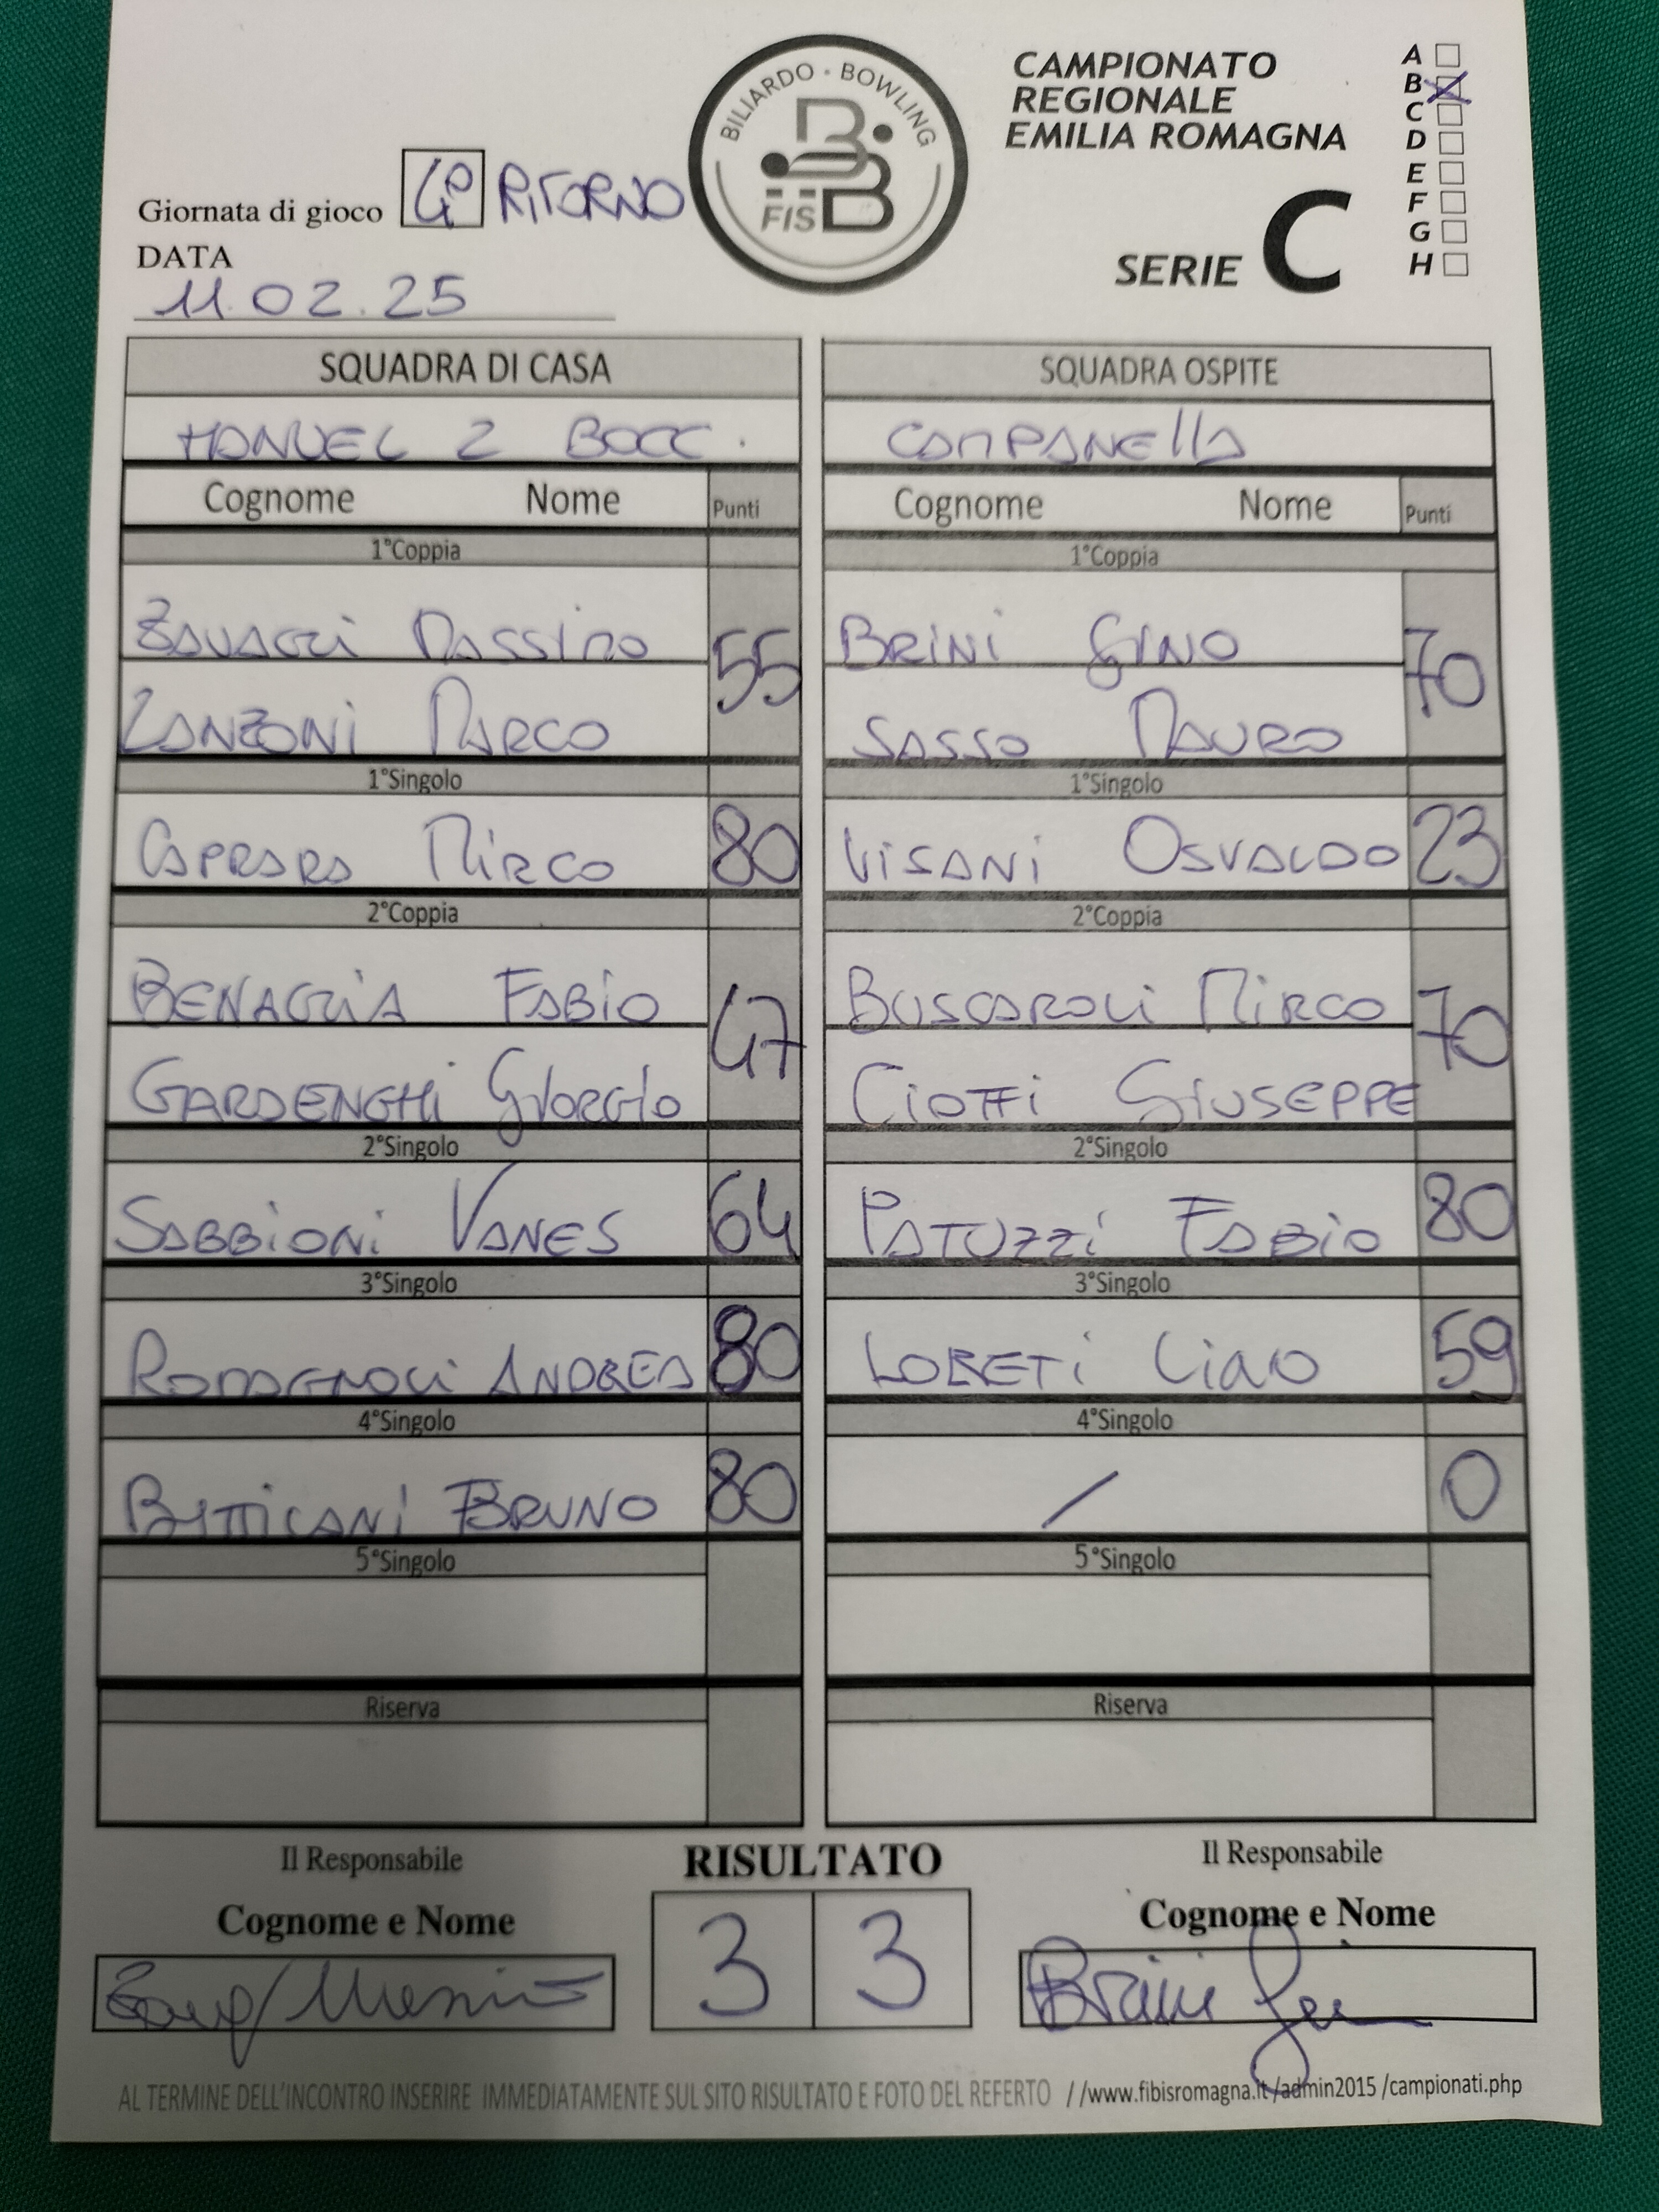 BILIARDO · BOWLING
FISBB
CAMPIONATO
REGIONALE
EMILIA ROMAGNA
SERIE C
A
B
C
D
E
F
G
H
Giornata di gioco 4° RITORNO
DATA
11.02.25
SQUADRA DI CASA SQUADRA OSPITE
MANUEL 2 BOCC. CAMPANELLA
Cognome Nome Punti Cognome Nome Punti
1°Coppia 1°Coppia
MASSIMO 55 BRINI GINO 70
ZANZONI MARCO SASSO MAURO
1°Singolo 1°Singolo
CAPRARA MIRCO 80 VISANI OSVALDO 23
2°Coppia 2°Coppia
BENAGLIA FABIO 47 BUSCAROLI MIRCO 70
GARDENGHI GIORGIO CIOTTI GIUSEPPE
2°Singolo 2°Singolo
SABBIONI VANES 64 PATUZZI FABIO 80
3°Singolo 3°Singolo
ROMAGNOLI ANDREA 80 LORETI 59
4°Singolo 4°Singolo
BRUNO 80 / 0
5°Singolo 5°Singolo
Riserva Riserva
Il Responsabile RISULTATO Il Responsabile
Cognome e Nome 3 3 Cognome e Nome
Brini
AL TERMINE DELL'INCONTRO INSERIRE IMMEDIATAMENTE SUL SITO RISULTATO E FOTO DEL REFERTO //www.fibisromagna.it/admin2015 /campionati.php